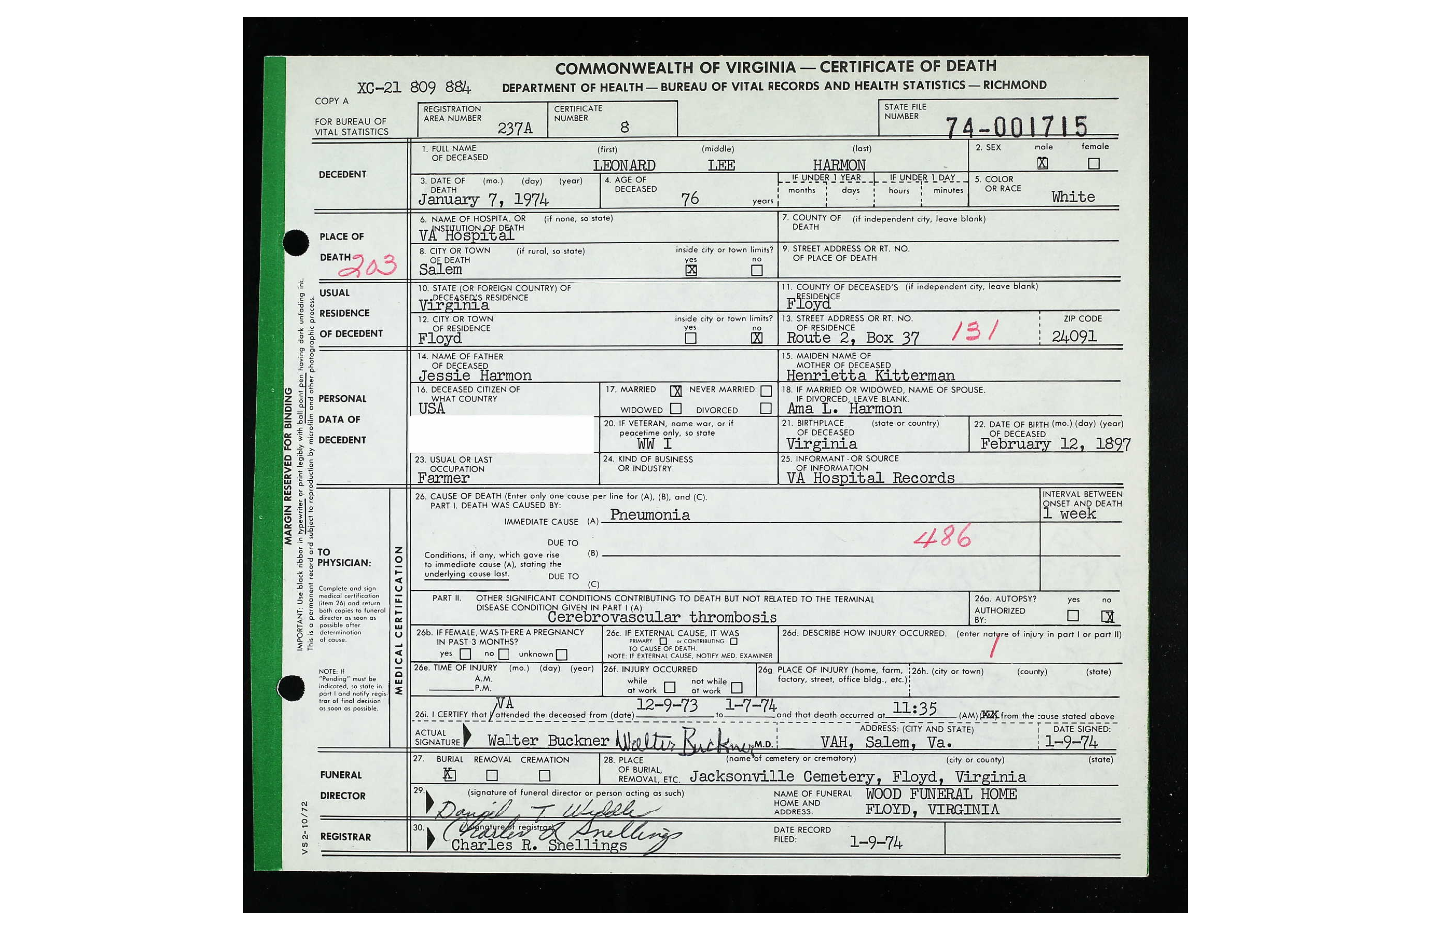 COMMONWEALTH OF VIRGINIA — CERTIFICATE OF DEATH
XC-21 809 884 DEPARTMENT OF HEALTH — BUREAU OF VITAL RECORDS AND HEALTH STATISTICS — RICHMOND
COPY A
FOR BUREAU OF VITAL STATISTICS
REGISTRATION AREA NUMBER 237A
CERTIFICATE NUMBER 8
STATE FILE NUMBER 74-001715
DECEDENT
1. FULL NAME OF DECEASED (first) (middle) (last)
LEONARD LEE HARMON
2. SEX male female
X
3. DATE OF DEATH (mo.) (day) (year)
January 7, 1974
4. AGE OF DECEASED 76 years
IF UNDER 1 YEAR months days
IF UNDER 1 DAY hours minutes
5. COLOR OR RACE White
PLACE OF DEATH
203
6. NAME OF HOSPITAL OR INSTITUTION OF DEATH (if none, so state)
VA Hospital
7. COUNTY OF DEATH (if independent city, leave blank)
8. CITY OR TOWN OF DEATH (if rural, so state)
Salem
inside city or town limits? yes no
X
9. STREET ADDRESS OR RT. NO. OF PLACE OF DEATH
USUAL RESIDENCE OF DECEDENT
10. STATE (OR FOREIGN COUNTRY) OF DECEASED'S RESIDENCE
Virginia
11. COUNTY OF DECEASED'S RESIDENCE (if independent city, leave blank)
Floyd
12. CITY OR TOWN OF RESIDENCE
Floyd
inside city or town limits? yes no
X
13. STREET ADDRESS OR RT. NO. OF RESIDENCE
Route 2, Box 37
131
ZIP CODE
24091
PERSONAL DATA OF DECEDENT
14. NAME OF FATHER OF DECEASED
Jessie Harmon
15. MAIDEN NAME OF MOTHER OF DECEASED
Henrietta Kitterman
16. DECEASED CITIZEN OF WHAT COUNTRY
USA
17. MARRIED X NEVER MARRIED
WIDOWED DIVORCED
18. IF MARRIED OR WIDOWED, NAME OF SPOUSE. IF DIVORCED, LEAVE BLANK.
Ama L. Harmon
20. IF VETERAN, name war, or if peacetime only, so state
WW I
21. BIRTHPLACE OF DECEASED (state or country)
Virginia
22. DATE OF BIRTH (mo.) (day) (year) OF DECEASED
February 12, 1897
23. USUAL OR LAST OCCUPATION
Farmer
24. KIND OF BUSINESS OR INDUSTRY
25. INFORMANT - OR SOURCE OF INFORMATION
VA Hospital Records
MARGIN RESERVED FOR BINDING
IMPORTANT: Use black ribbon in typewriter or print legibly with ball point pen having dark unfading ink.
This is a permanent record and subject to reproduction by microfilm and other photographic process.
TO PHYSICIAN:
Complete and sign medical certification (item 26) and return both copies to funeral director as soon as possible after determination of cause.
NOTE: If "Pending" must be indicated, so state in part I and notify registrar of final decision as soon as possible.
MEDICAL CERTIFICATION
26. CAUSE OF DEATH (Enter only one cause per line for (A), (B), and (C).
PART I. DEATH WAS CAUSED BY:
IMMEDIATE CAUSE (A) Pneumonia
INTERVAL BETWEEN ONSET AND DEATH
1 week
486
DUE TO
Conditions, if any, which gave rise to immediate cause (A), stating the underlying cause last.
(B)
DUE TO
(C)
PART II. OTHER SIGNIFICANT CONDITIONS CONTRIBUTING TO DEATH BUT NOT RELATED TO THE TERMINAL DISEASE CONDITION GIVEN IN PART I (A)
Cerebrovascular thrombosis
26a. AUTOPSY? AUTHORIZED BY: yes no
X
26b. IF FEMALE, WAS THERE A PREGNANCY IN PAST 3 MONTHS?
yes no unknown
26c. IF EXTERNAL CAUSE, IT WAS
PRIMARY or CONTRIBUTING
TO CAUSE OF DEATH.
NOTE: IF EXTERNAL CAUSE, NOTIFY MED. EXAMINER
26d. DESCRIBE HOW INJURY OCCURRED. (enter nature of injury in part I or part II)
1
26e. TIME OF INJURY (mo.) (day) (year)
A.M.
P.M.
26f. INJURY OCCURRED
while at work not while at work
26g PLACE OF INJURY (home, farm, factory, street, office bldg., etc.)
26h. (city or town) (county) (state)
VA
26i. I CERTIFY that / attended the deceased from (date) 12-9-73 to 1-7-74 and that death occurred at 11:35 (AM) from the cause stated above
ACTUAL SIGNATURE Walter Buckner Walter Buckner M.D.
ADDRESS: (CITY AND STATE)
VAH, Salem, Va.
DATE SIGNED:
1-9-74
FUNERAL DIRECTOR
27. BURIAL REMOVAL CREMATION
X
28. PLACE OF BURIAL, REMOVAL, ETC. (name of cemetery or crematory) (city or county) (state)
Jacksonville Cemetery, Floyd, Virginia
29. (signature of funeral director or person acting as such)
NAME OF FUNERAL HOME AND ADDRESS:
WOOD FUNERAL HOME
FLOYD, VIRGINIA
VS 2-10/72
REGISTRAR
30. (signature of registrar)
Charles R. Snellings
Charles R. Snellings
DATE RECORD FILED:
1-9-74